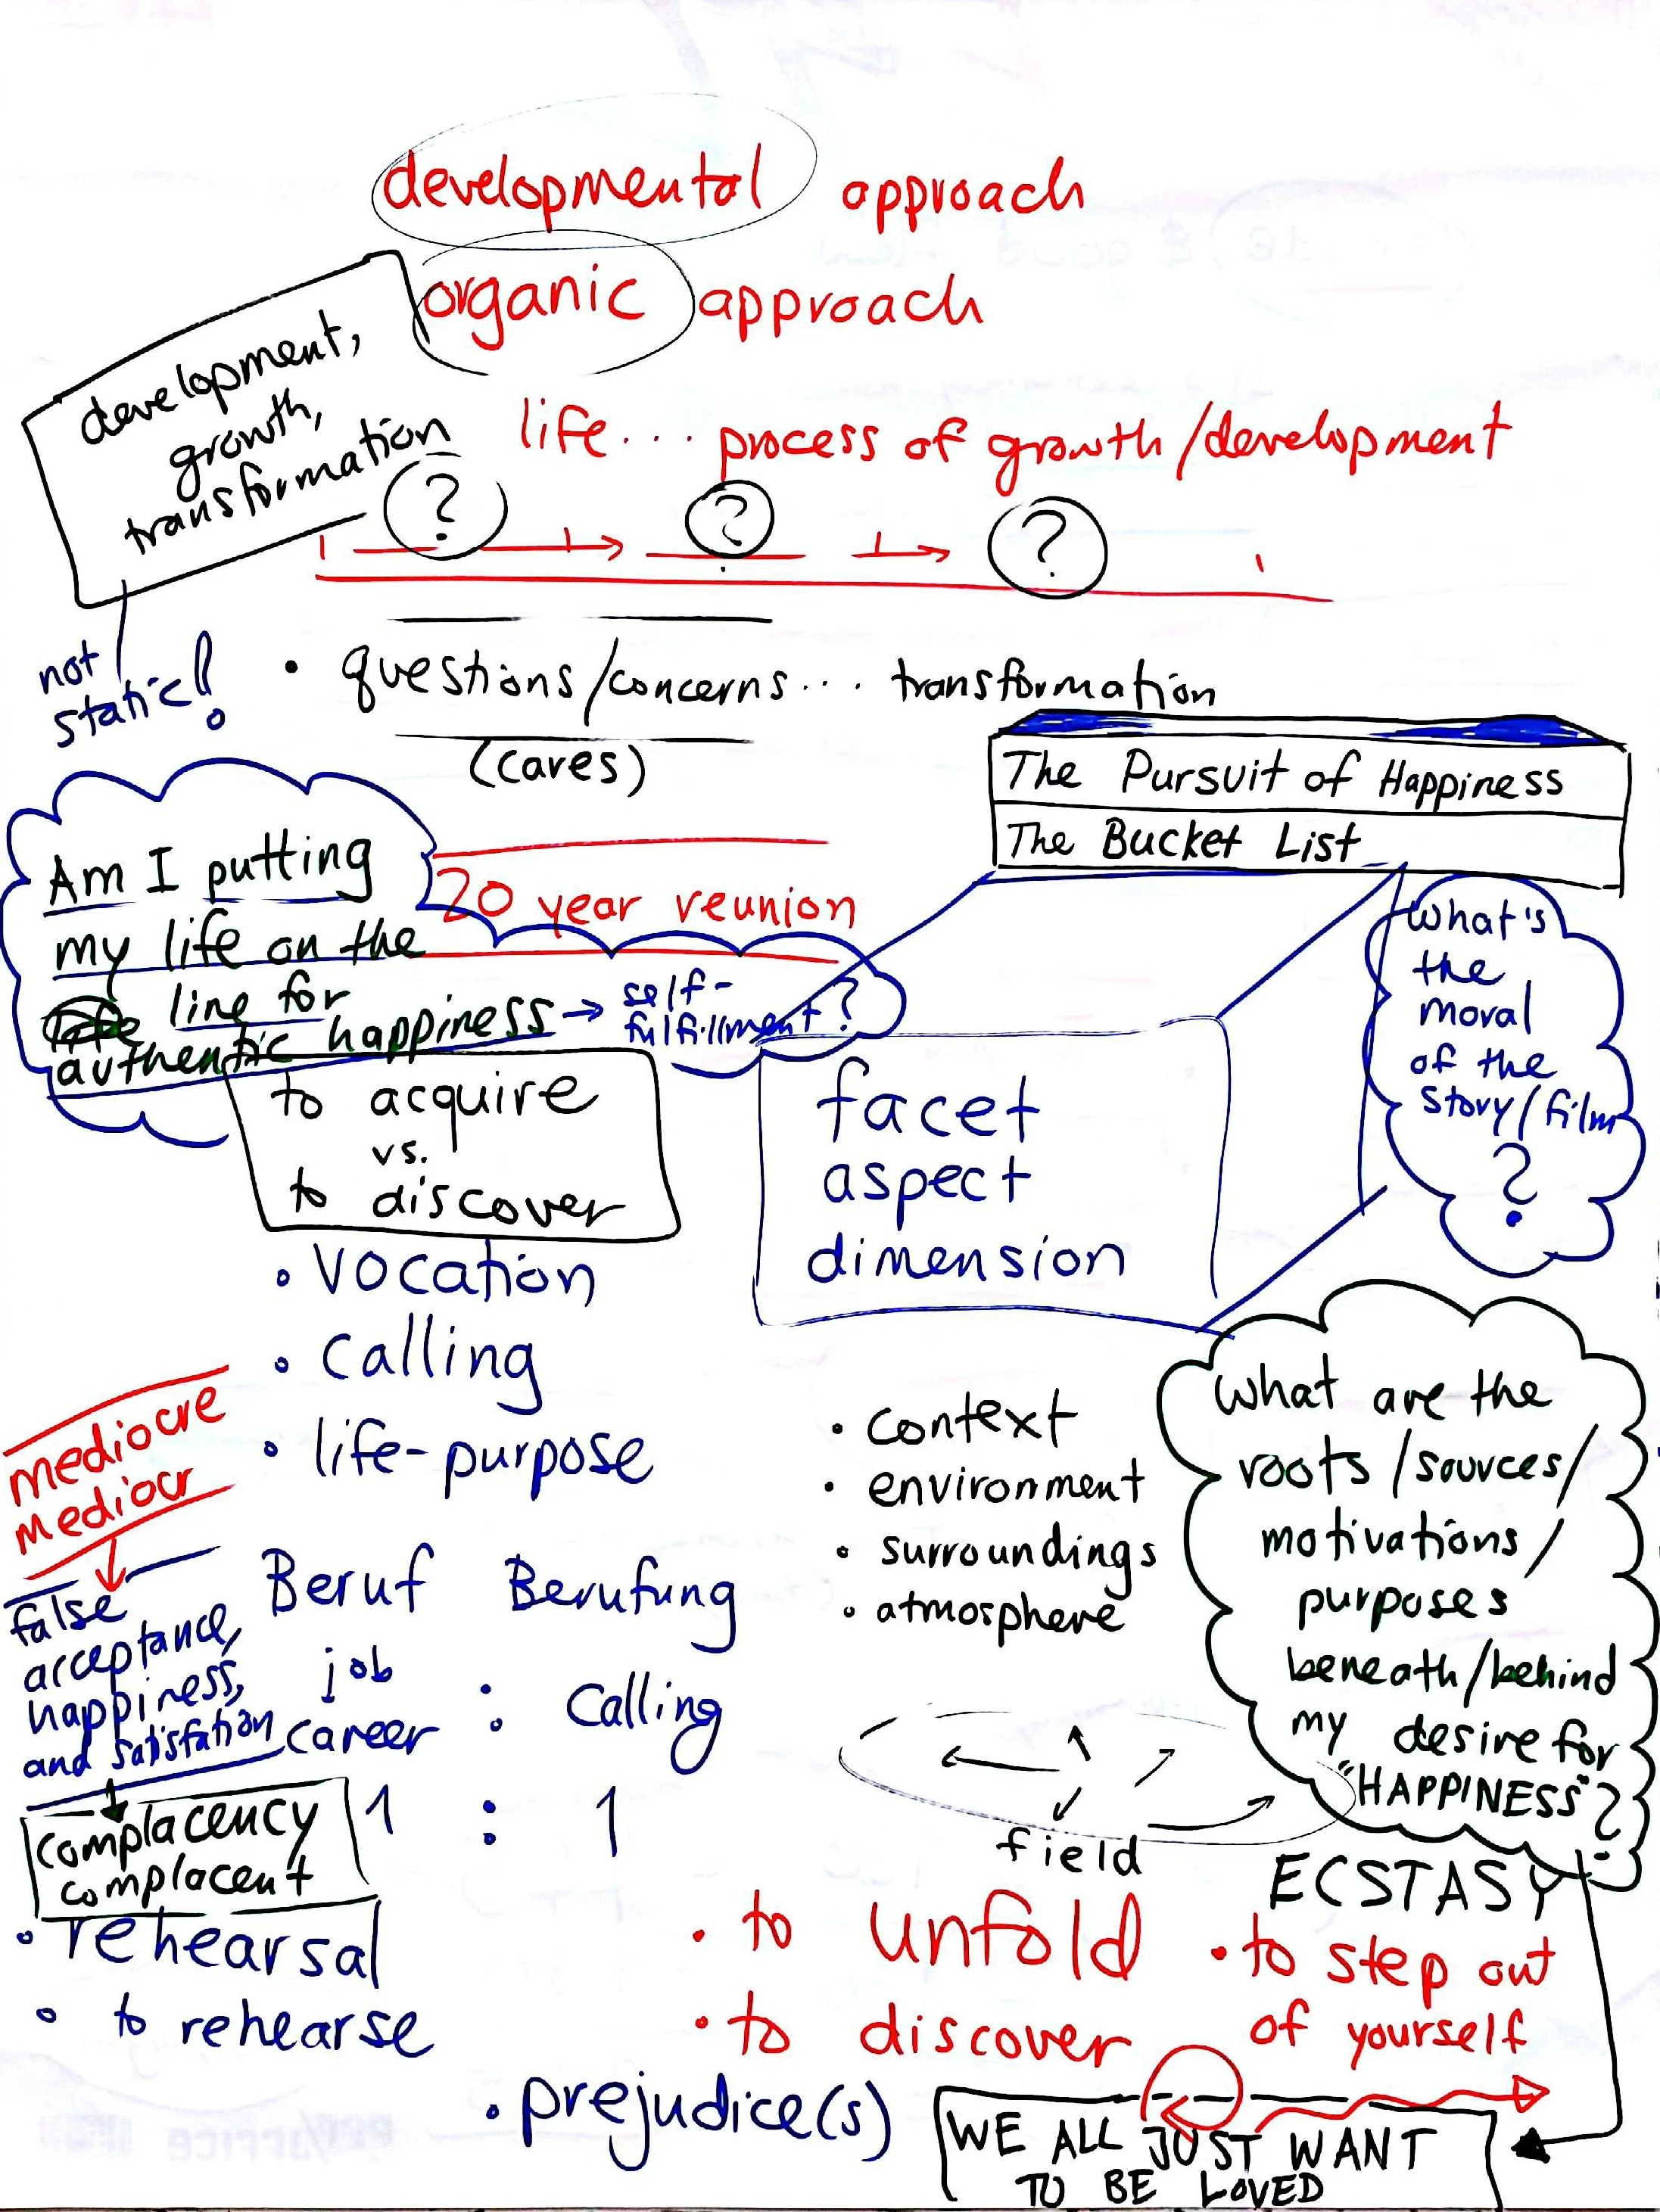 developmental approach
organic approach
development,
growth,
transformation
life... process of growth/development
? ? ?
not
static!
• questions/concerns... transformation
(cares)
The Pursuit of Happiness
The Bucket List
Am I putting
my life on the
line for
authentic happiness → self-
fulfillment?
20 year reunion
What's
the
moral
of the
story/film
?
to acquire
vs.
to discover
facet
aspect
dimension
• vocation
• calling
• life-purpose
mediocre
mediocr
false
acceptance,
happiness,
and satisfation
complacency
complacent
Beruf Berufung
job
career : calling
1 : 1
• context
• environment
• surroundings
• atmosphere
What are the
roots/sources/
motivations/
purposes
beneath/behind
my desire for
"HAPPINESS"?
field
ECSTASY
• rehearsal
• to rehearse
• to unfold
• to discover
• to step out
of yourself
• prejudice(s)
WE ALL JUST WANT
TO BE LOVED